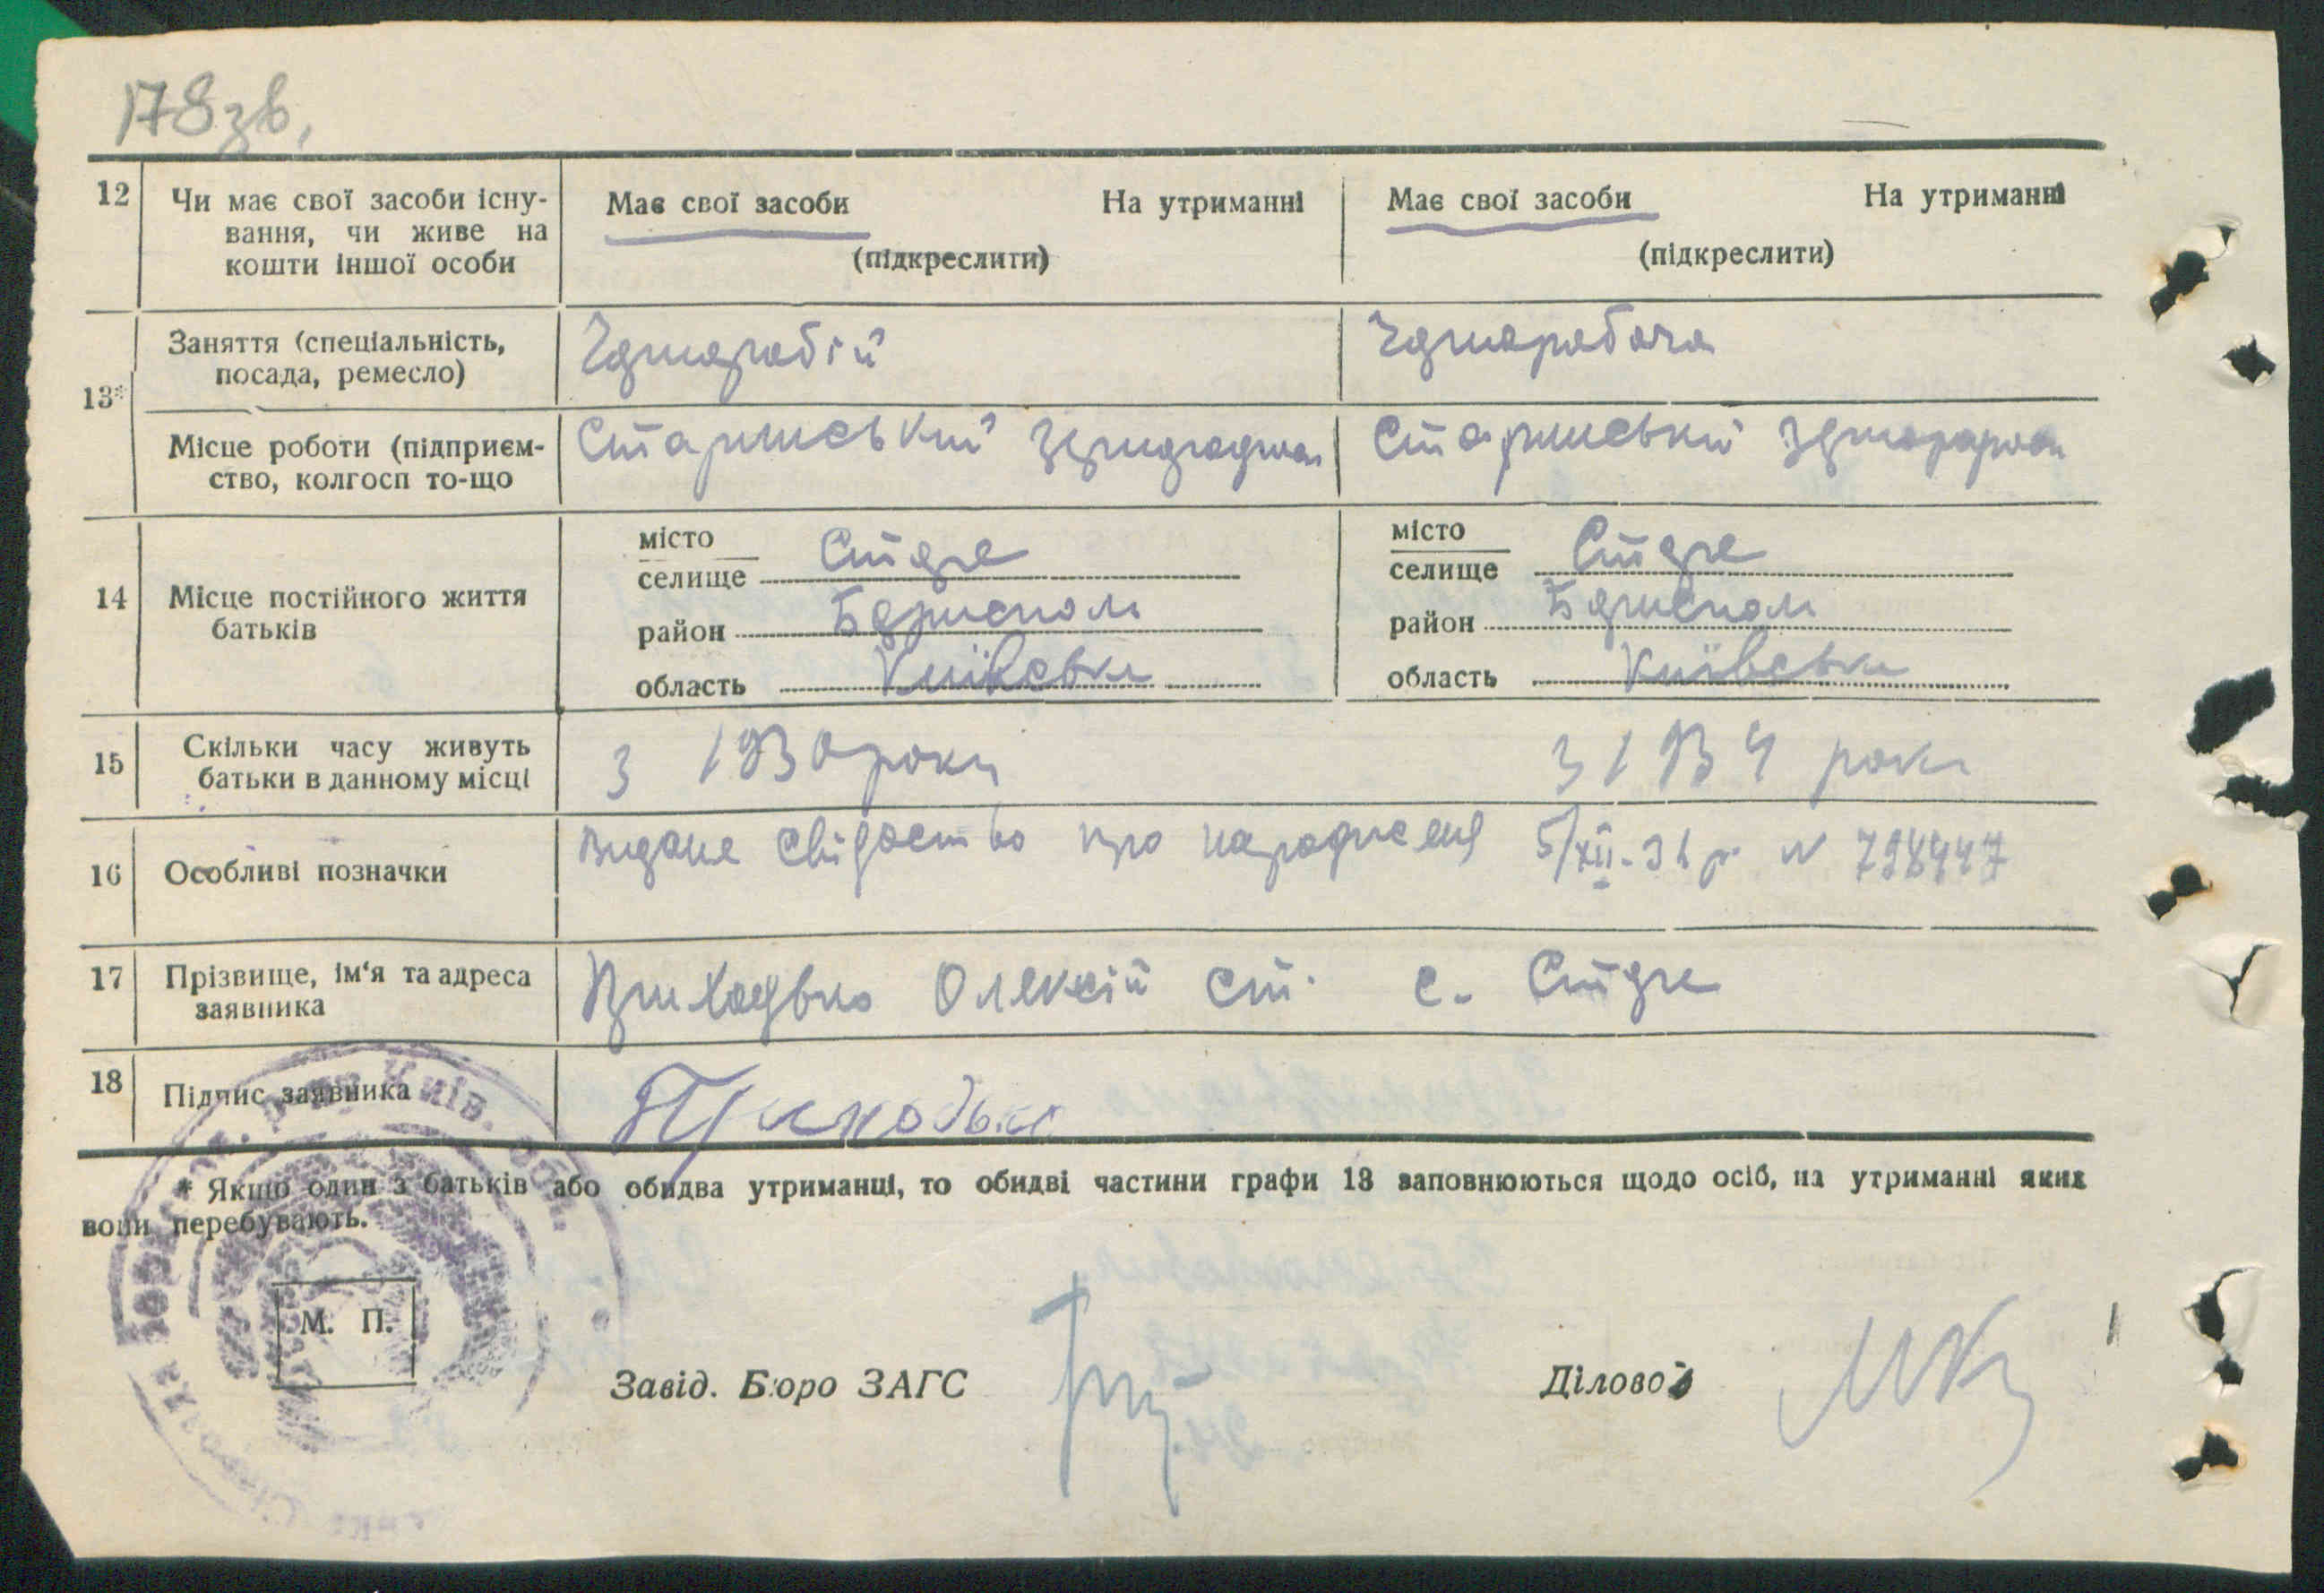 178 зв.
12 Чи має свої засоби існу-
вання, чи живе на
кошти іншої особи
Має свої засоби На утриманні
(підкреслити)
Має свої засоби На утриманні
(підкреслити)
13*
Заняття (спеціальність,
посада, ремесло)
Місце роботи (підприєм-
ство, колгосп то-що
Старинський
Старинський
14 Місце постійного життя
батьків
місто
селище
район Бориспол
область Київська
місто
селище
район Бориспол
область Київська
15 Скільки часу живуть
батьки в данному місці
з 1930 року з 1934 року
16 Особливі позначки
Видане свідоство про народженя 5/XII-36 р. N
17 Прізвище, ім'я та адреса
заявника
Приходько Олексій Ст. с.
18 Підпис заявника
Приходько
* Якщо один з батьків або обидва утриманці, то обидві частини графи 13 заповнюються щодо осіб, на утриманні яких
вони перебувають.
М. П.
Завід. Бюро ЗАГС
Діловод
Київ. обл.